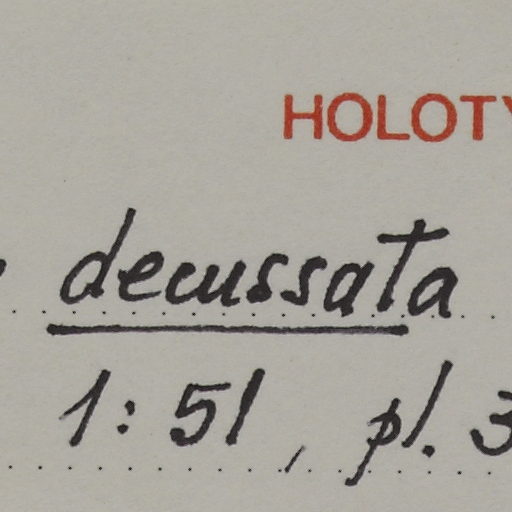 HOLOTY
decussata
1:51, pl. 3